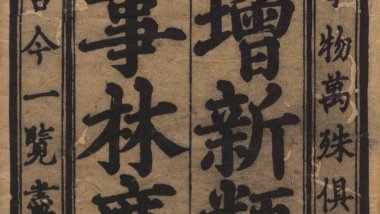 物萬殊俱
增新類
事林廣
今一覽盡